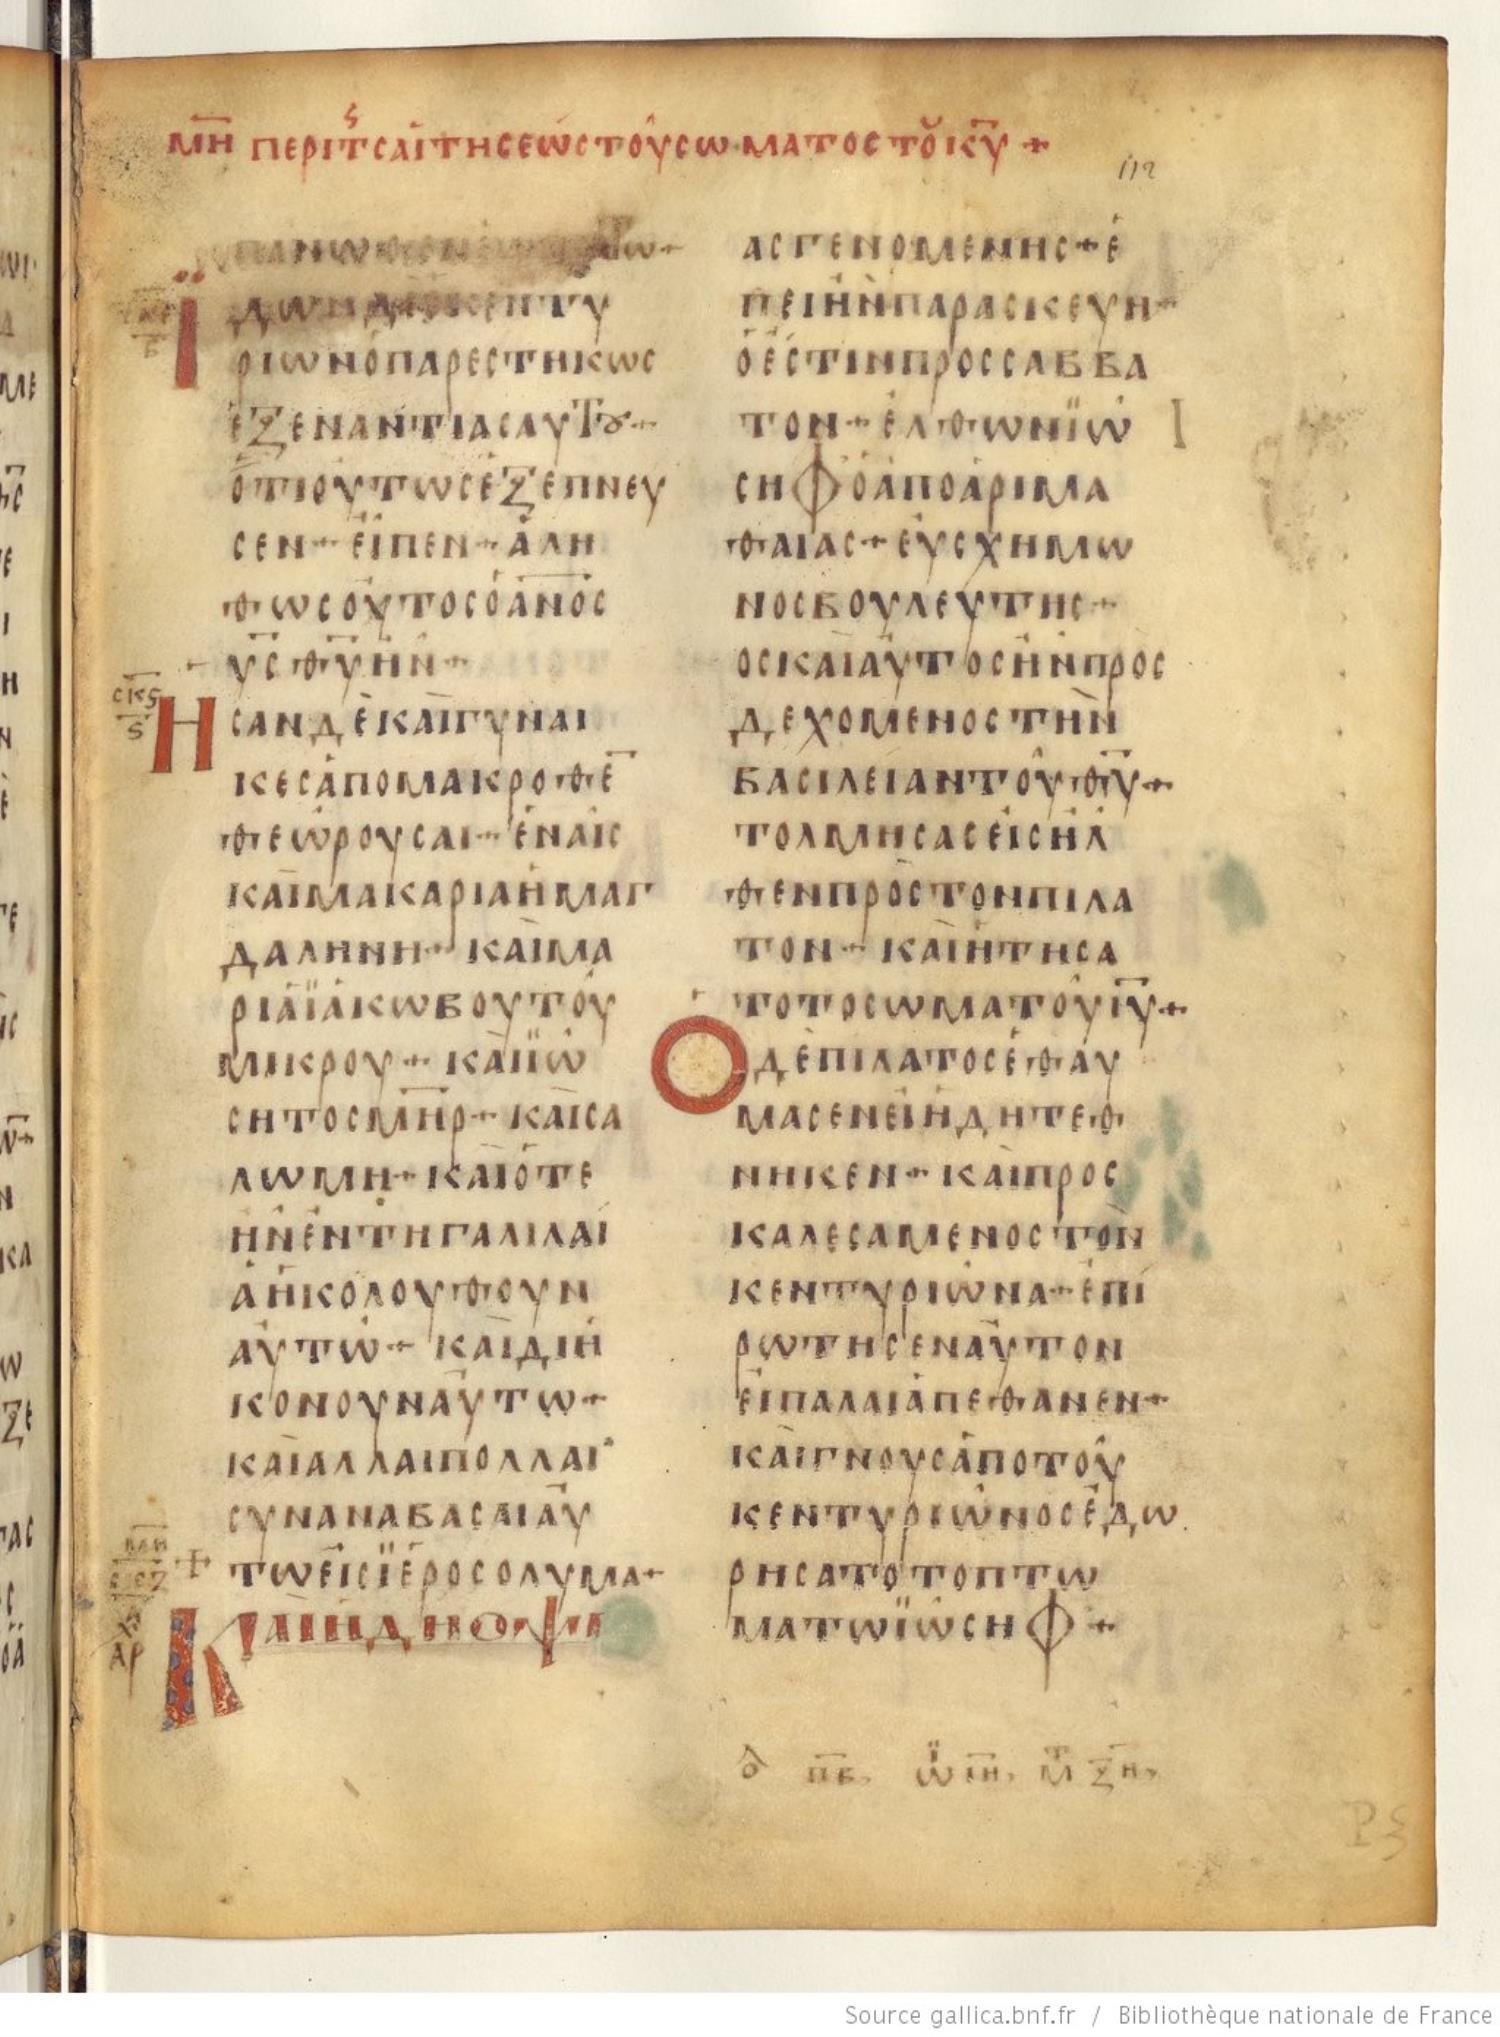 ΜΗ ΠΕΡΙ Τς ΑΙΤΗСΕΩС ΤΟΥ СΩΜΑΤΟС ΤΟΥ ΚΥ +
112
ΠΑΝΩ
ΔΩΝ ΔΕ Ο ΚΕΝΤΥ
ΡΙΩΝ Ο ΠΑΡΕСΤΗΚΩС
ΕΞΕΝΑΝΤΙΑС ΑΥΤȢ +
ΟΤΙ ΟΥΤΩС ΕΞΕΠΝΕΥ
СΕΝ + ΕΙΠΕΝ + ΑΛΗ
ΘΩС ΟΥΤΟС Ο ΑΝΟС
ΥС ΘΥ ΗΝ +
СΚϚ
Ϛ
ΗСΑΝ ΔΕ ΚΑΙ ΓΥΝΑΙ
ΚΕС ΑΠΟ ΜΑΚΡΟΘΕ
ΘΕΩΡΟΥСΑΙ + ΕΝ ΑΙС
ΚΑΙ ΜΑΚΑΡΙΑ Η ΜΑΓ
ΔΑΛΗΝΗ + ΚΑΙ ΜΑ
ΡΙΑ ΪΑΚΩΒΟΥ ΤΟΥ
ΜΙΚΡΟΥ + ΚΑΙ ΪΩ
СΗΤΟС ΜΗΡ + ΚΑΙ СΑ
ΛΩΜΗ + ΚΑΙ ΟΤΕ
ΗΝ ΕΝ ΤΗ ΓΑΛΙΛΑΙ
Α ΗΚΟΛΟΥΘΟΥΝ
ΑΥΤΩ + ΚΑΙ ΔΙΗ
ΚΟΝΟΥΝ ΑΥΤΩ +
ΚΑΙ ΑΛΛΑΙ ΠΟΛΛΑΙ
СΥΝΑΝΑΒΑСΑΙ ΑΥ
ΤΩ ΕΙС ΪΕΡΟСΟΛΥΜΑ +
ΑΡ
ΚΑΙ ΗΔΗ ΟΨΙ
ΑС ΓΕΝΟΜΕΝΗС + Ε
ΠΕΙ ΗΝ ΠΑΡΑСΚΕΥΗ +
Ο ΕСΤΙΝ ΠΡΟССΑΒΒΑ
ΤΟΝ + ΕΛΘΩΝ ΪΩ
СΗΦ Ο ΑΠΟ ΑΡΙΜΑ
ΘΑΙΑС + ΕΥСΧΗΜΩ
ΝΟС ΒΟΥΛΕΥΤΗС +
ΟС ΚΑΙ ΑΥΤΟС ΗΝ ΠΡΟС
ΔΕΧΟΜΕΝΟС ΤΗΝ
ΒΑСΙΛΕΙΑΝ ΤΟΥ ΘΥ +
ΤΟΛΜΗСΑС ΕΙСΗΛ
ΘΕΝ ΠΡΟС ΤΟΝ ΠΙΛΑ
ΤΟΝ + ΚΑΙ ΗΤΗСΑ
ΤΟ ΤΟ СΩΜΑ ΤΟΥ ΙΥ +
Ο ΔΕ ΠΙΛΑΤΟС ΕΘΑΥ
ΜΑСΕΝ ΕΙ ΗΔΗ ΤΕΘ
ΝΗΚΕΝ + ΚΑΙ ΠΡΟС
ΚΑΛΕСΑΜΕΝΟС ΤΟΝ
ΚΕΝΤΥΡΙΩΝΑ + ΕΠΙ
ΡΩΤΗСΕΝ ΑΥΤΟΝ
ΕΙ ΠΑΛΑΙ ΑΠΕΘΑΝΕΝ +
ΚΑΙ ΓΝΟΥС ΑΠΟ ΤΟΥ
ΚΕΝΤΥΡΙΩΝΟС ΕΔΩ
ΡΗСΑΤΟ ΤΟ ΠΤΩ
ΜΑ ΤΩ ΪΩСΗΦ +
Source gallica.bnf.fr / Bibliothèque nationale de France